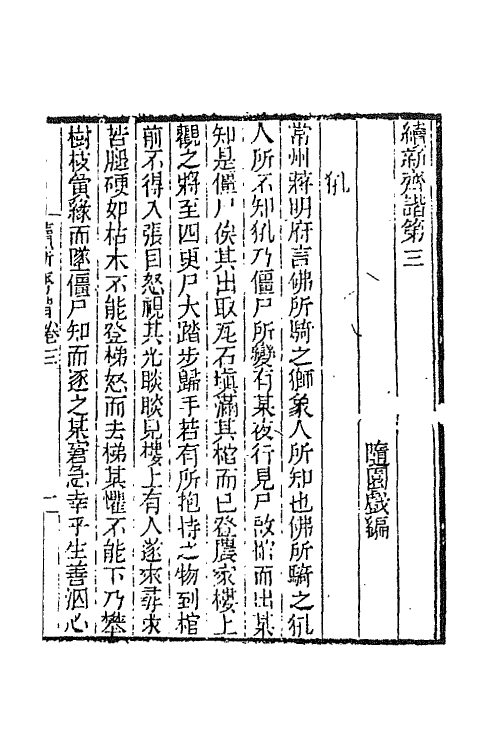 續新齊諧第三
隨園戲編
犼
常州蔣明府言佛所騎之獅象人所知也佛所騎之犼
人所不知犼乃僵尸所變有某夜行見尸啟棺而出某
知是僵尸俟其出取瓦石塡滿其棺而已登農家樓上
觀之將至四更尸大踏步歸手若有所抱持之物到棺
前不得入張目怒視其光睒睒見樓上有人遂來尋求
苦腿硬如枯木不能登梯怒而去梯某懼不能下乃攀
樹枝夤緣而墜僵尸知而逐之某窘急幸平生善泅心
續新齊諧卷三
一